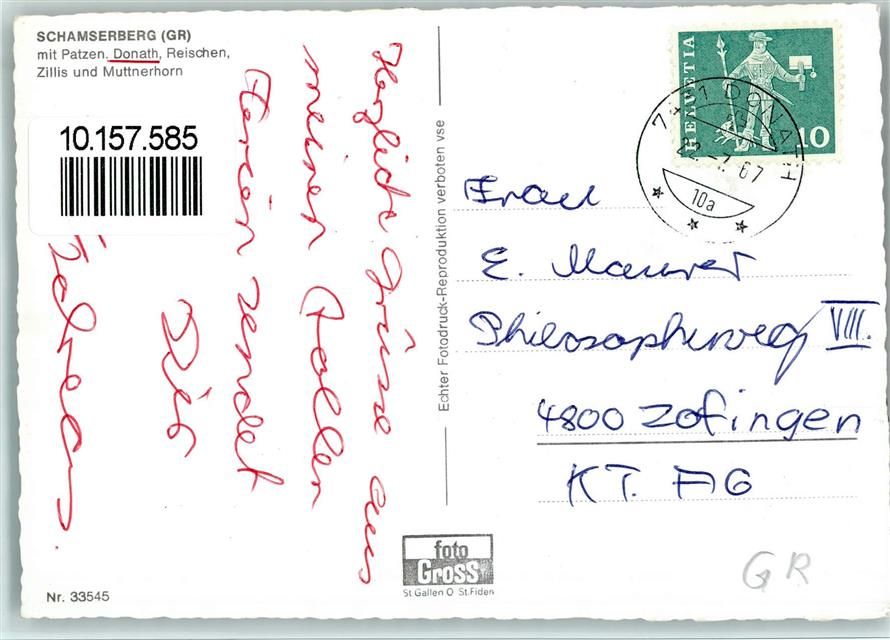 SCHAMSERBERG (GR)
mit Patzen, Donath, Reischen,
Zillis und Muttnerhorn
10.157.585
Herzliche Grüsse aus
meinen tollen
Ferien sendet
Dir
Echter Fotodruck-Reproduktion verboten vse
HELVETIA
10
7431 DONATH
22.-7.67
10a
Frau
E. Maurer
Philosophenweg VIII.
4800 Zofingen
KT. AG
foto
Gross
St.Gallen O St.Fiden
GR
Nr. 33545